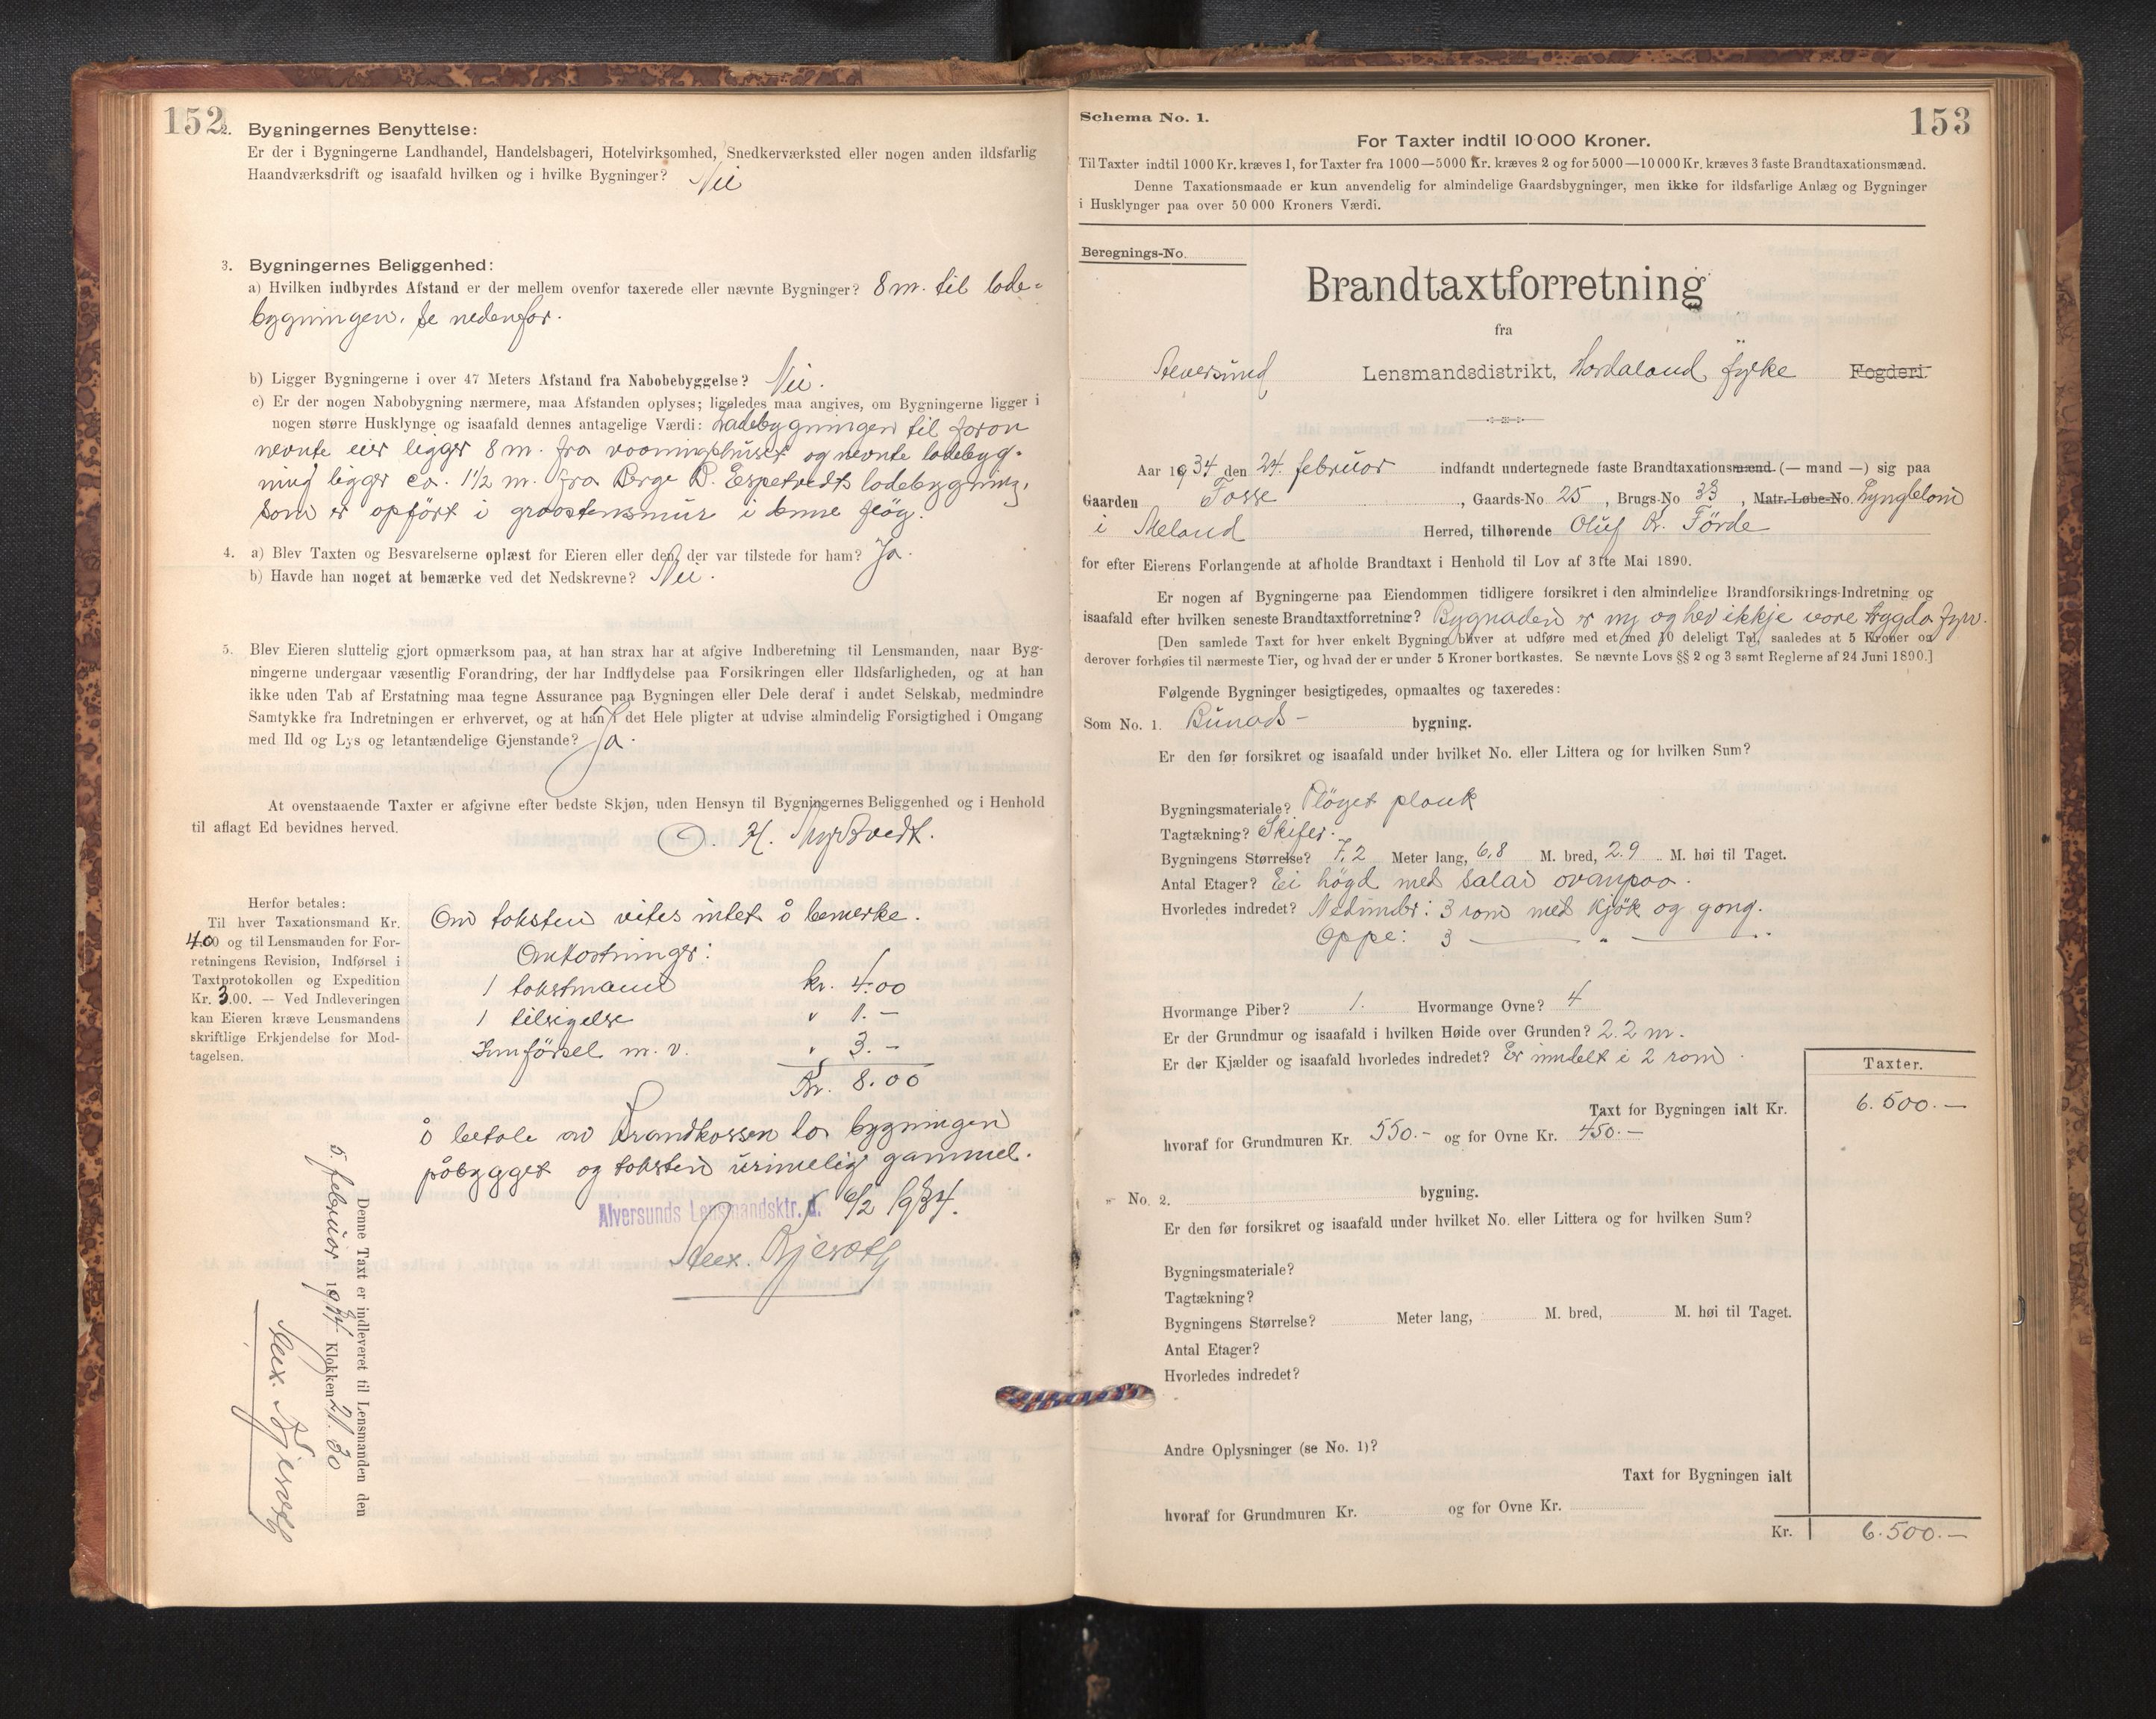 152
2. Bygningernes Benyttelse:
Er der i Bygningerne Landhandel, Handelsbageri, Hotelvirksomhed, Snedkerværksted eller nogen anden ildsfarlig
Haandværksdrift og isaafald hvilken og i hvilke Bygninger? Nei
3. Bygningernes Beliggenhed:
a) Hvilken indbyrdes Afstand er der mellem ovenfor taxerede eller nævnte Bygninger? 8 m. til lade-
bygningen. Se nedenfor.
b) Ligger Bygningerne i over 47 Meters Afstand fra Nabobebyggelse? Nei.
c) Er der nogen Nabobygning nærmere, maa Afstanden oplyses; ligeledes maa angives, om Bygningerne ligger i
nogen større Husklynge og isaafald dennes antagelige Værdi: Ladebygningen til foran
nevnte eier ligger 8 m. fra vaaningshuset og nevnte ladebyg-
ning ligger ca. 1 1/2 m. fra Berge B. Espetvedts ladebygning,
som er opført i graastensmur i denne fløy.
4. a) Blev Taxten og Besvarelserne oplæst for Eieren eller den, der var tilstede for ham? Ja.
b) Havde han noget at bemærke ved det Nedskrevne? Nei.
5. Blev Eieren sluttelig gjort opmærksom paa, at han strax har at afgive Indberetning til Lensmanden, naar Byg-
ningerne undergaar væsentlig Forandring, der har Indflydelse paa Forsikringen eller Ildsfarligheden, og at han
ikke uden Tab af Erstatning maa tegne Assurance paa Bygningen eller Dele deraf i andet Selskab, medmindre
Samtykke fra Indretningen er erhvervet, og at han i det Hele pligter at udvise almindelig Forsigtighed i Omgang
med Ild og Lys og letantændelige Gjenstande? Ja.
At ovenstaaende Taxter er afgivne efter bedste Skjøn, uden Hensyn til Bygningernes Beliggenhed og i Henhold
til aflagt Ed bevidnes herved.
O. H. Myrtvedt.
Herfor betales:
Til hver Taxationsmand Kr.
4.00 og til Lensmanden for For-
retningens Revision, Indførsel i
Taxtprotokollen og Expedition
Kr. 3.00. — Ved Indleveringen
kan Eieren kræve Lensmandens
skriftlige Erkjendelse for Mod-
tagelsen.
Om taksten vites intet å bemerke.
Omkostninger:
1 takstmann kr. 4.00
1 tilsigelse " 1.-
Innførsel m. v. " 3.-
Kr. 8.00
å betale av Brandkassen da bygningen
påbygget og taksten urimelig gammel.
Alversunds Lensmandsktr. d. 6/2 1934.
Alex. Bjerseth
Denne Taxt er indleveret til Lensmanden den
5. februar 1934 Klokken 21.30
Alex. Bjerseth
Schema No. 1.
153
For Taxter indtil 10 000 Kroner.
Til Taxter indtil 1000 Kr. kræves 1, for Taxter fra 1000—5000 Kr. kræves 2 og for 5000—10 000 Kr. kræves 3 faste Brandtaxationsmænd.
Denne Taxationsmaade er kun anvendelig for almindelige Gaardsbygninger, men ikke for ildsfarlige Anlæg og Bygninger
i Husklynger paa over 50 000 Kroners Værdi.
Beregnings-No.
Brandtaxtforretning
fra
Alversund Lensmandsdistrikt, Hordaland fylke Fogderi
Aar 1934 den 24. februar indfandt undertegnede faste Brandtaxationsmænd (— mand —) sig paa
Gaarden Fosse, Gaards-No 25, Brugs-No 33, Matr.-Løbe-No. Lyngblom
i Meland Herred, tilhørende Oluf Kr. Förde
for efter Eierens Forlangende at afholde Brandtaxt i Henhold til Lov af 31te Mai 1890.
Er nogen af Bygningerne paa Eiendommen tidligere forsikret i den almindelige Brandforsikrings-Indretning og
isaafald efter hvilken seneste Brandtaxtforretning? Bygnaden er ny og hev ikkje vore trygda fyrr.
[Den samlede Taxt for hver enkelt Bygning bliver at udføre med et med 10 deleligt Tal, saaledes at 5 Kroner og
derover forhøies til nærmeste Tier, og hvad der er under 5 Kroner bortkastes. Se nævnte Lovs §§ 2 og 3 samt Reglerne af 24 Juni 1890.]
Følgende Bygninger besigtigedes, opmaaltes og taxeredes:
Som No. 1. Bunads- bygning.
Er den før forsikret og isaafald under hvilket No. eller Littera og for hvilken Sum?
Bygningsmateriale? Pløget plank
Tagtækning? Skifer.
Bygningens Størrelse? 7,2 Meter lang, 6,8 M. bred, 2.9 M. høi til Taget.
Antal Etager? Ei högd med salar ovanpaa.
Hvorledes indredet? Nedunder: 3 rom med kjøk og gong.
Oppe: 3 — " —
Hvormange Piber? 1. Hvormange Ovne? 4
Er der Grundmur og isaafald i hvilken Høide over Grunden? 2.2 m.
Er der Kjælder og isaafald hvorledes indredet? Er inndelt i 2 rom.
Taxter.
Taxt for Bygningen ialt Kr. 6.500.—
hvoraf for Grundmuren Kr. 550.- og for Ovne Kr. 450.-
" No. 2. bygning.
Er den før forsikret og isaafald under hvilket No. eller Littera og for hvilken Sum?
Bygningsmateriale?
Tagtækning?
Bygningens Størrelse? Meter lang, M. bred, M. høi til Taget.
Antal Etager?
Hvorledes indredet?
Andre Oplysninger (se No. 1)?
Taxt for Bygningen ialt
hvoraf for Grundmuren Kr. og for Ovne Kr.
Kr. 6.500.—